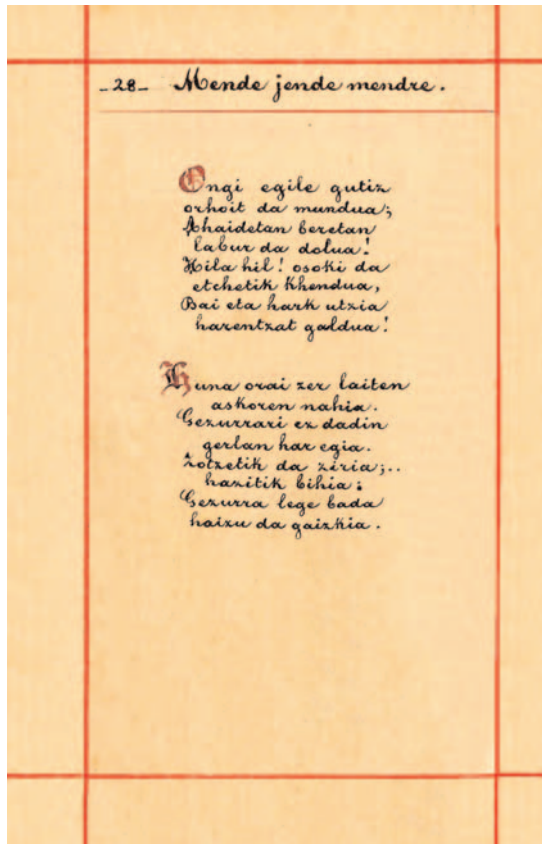 -28- Mende jende mendre.
Ongi egile gutiz
orhoit da mundua;
Ahaidetan beretan
labur da dolua!
Hila hil! osoki da
etchetik khendua,
Bai eta hark utzia
harentzat galdua!
Huna orai zer laiten
askoren nahia.
Gezurrari ez dadin
gerlan har egia.
Zotzetik da ziria;..
hazitik bihia:
Gezurra lege bada
haizu da gaizkia.